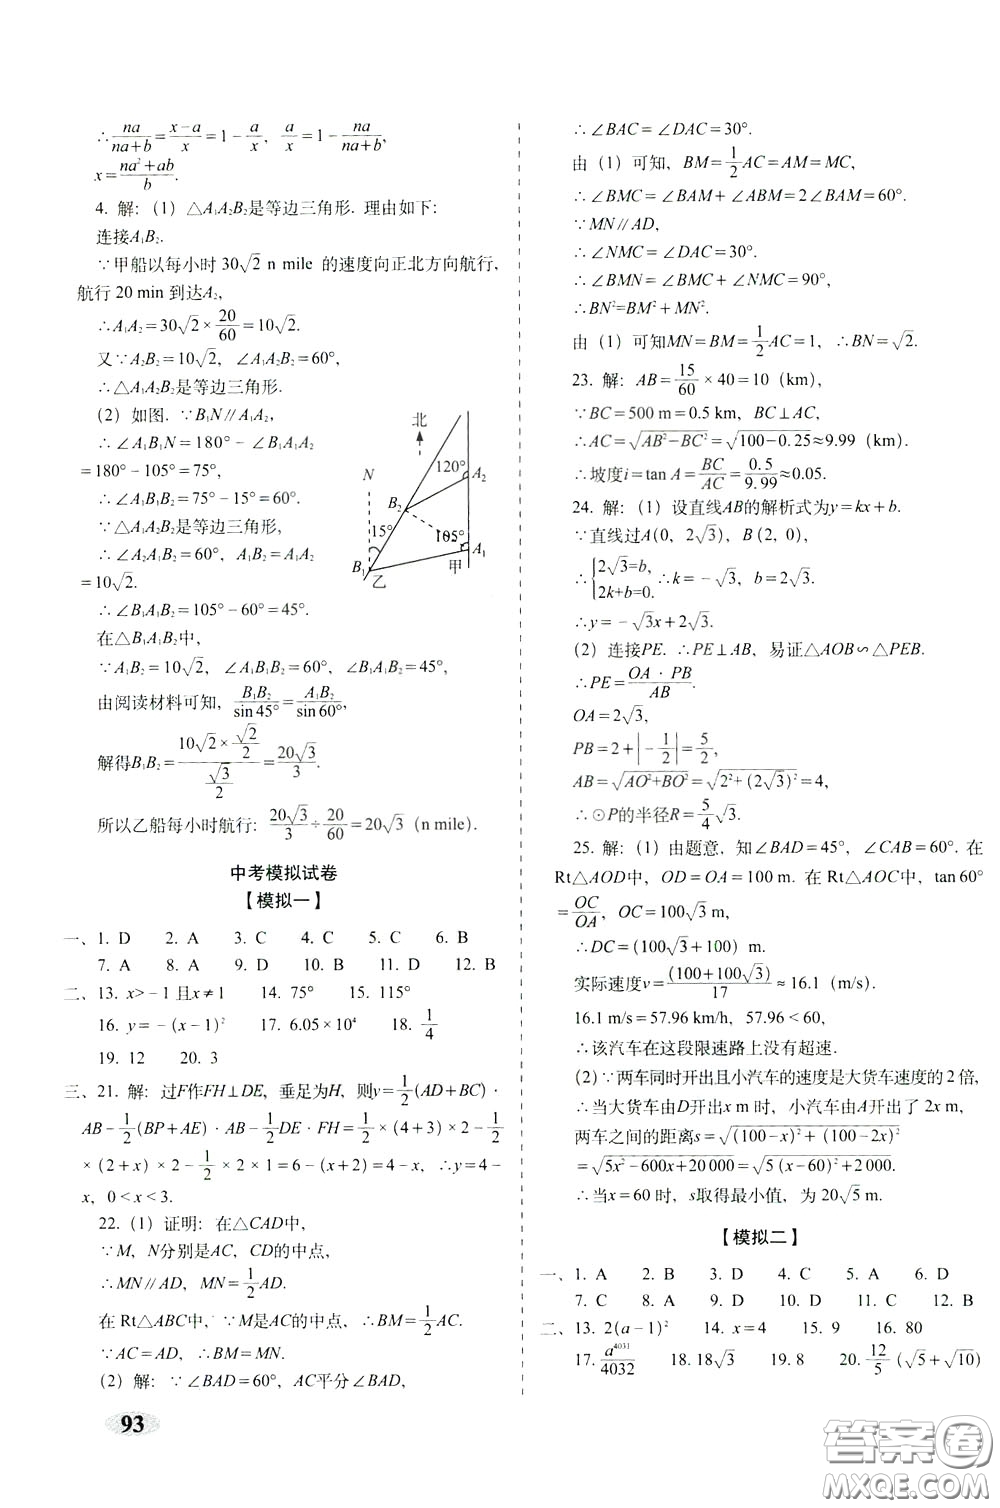 ∴na/(na+b)=(x-a)/x=1-a/x, a/x=1-na/(na+b),
x=(na²+ab)/b.
4. 解:(1)△A₁A₂B₂是等边三角形. 理由如下:
连接A₁B₂.
∵甲船以每小时 30√2 n mile 的速度向正北方向航行,
航行 20 min 到达A₂,
∴A₁A₂=30√2×20/60=10√2.
又∵A₂B₂=10√2, ∠A₁A₂B₂=60°,
∴△A₁A₂B₂是等边三角形.
(2) 如图. ∵B₁N∥A₁A₂,
∴∠A₁B₁N=180°-∠B₁A₁A₂
=180°-105°=75°,
∴∠A₁B₁B₂=75°-15°=60°.
∵△A₁A₂B₂是等边三角形,
∴∠A₂A₁B₂=60°, A₁B₂=A₁A₂
=10√2.
∴∠B₁A₁B₂=105°-60°=45°.
在△B₁A₁B₂中,
∵A₁B₂=10√2, ∠A₁B₁B₂=60°, ∠B₁A₁B₂=45°,
由阅读材料可知, B₁B₂/sin45°=A₁B₂/sin60°,
解得B₁B₂=(10√2×√2/2)/(√3/2)=20√3/3.
所以乙船每小时航行: 20√3/3÷20/60=20√3 (n mile).
北
120°
A₂
N
B₂
15°
105°
A₁
B₁
乙
甲
中考模拟试卷
【模拟一】
一、1. D 2. A 3. C 4. C 5. C 6. B
7. A 8. A 9. D 10. B 11. D 12. B
二、13. x>-1 且x≠1 14. 75° 15. 115°
16. y=-(x-1)² 17. 6.05×10⁴ 18. 1/4
19. 12 20. 3
三、21. 解: 过F作FH⊥DE, 垂足为H, 则y=1/2(AD+BC)·
AB-1/2(BP+AE)·AB-1/2DE·FH=1/2×(4+3)×2-1/2
×(2+x)×2-1/2×2×1=6-(x+2)=4-x, ∴y=4-
x, 0<x<3.
22.(1)证明: 在△CAD中,
∵M, N分别是AC, CD的中点,
∴MN∥AD, MN=1/2AD.
在 Rt△ABC中, ∵M是AC的中点, ∴BM=1/2AC.
∵AC=AD, ∴BM=MN.
(2) 解: ∵∠BAD=60°, AC平分∠BAD,
93
∴∠BAC=∠DAC=30°.
由(1)可知, BM=1/2AC=AM=MC,
∴∠BMC=∠BAM+∠ABM=2∠BAM=60°.
∵MN∥AD,
∴∠NMC=∠DAC=30°.
∴∠BMN=∠BMC+∠NMC=90°,
∴BN²=BM²+MN².
由(1)可知MN=BM=1/2AC=1, ∴BN=√2.
23. 解: AB=15/60×40=10 (km),
∵BC=500 m=0.5 km, BC⊥AC,
∴AC=√(AB²-BC²)=√(100-0.25)≈9.99 (km).
∴坡度i=tan A=BC/AC=0.5/9.99≈0.05.
24. 解:(1)设直线AB的解析式为y=kx+b.
∵直线过A(0, 2√3), B(2, 0),
∴{2√3=b, 2k+b=0. ∴k=-√3, b=2√3.
∴y=-√3x+2√3.
(2)连接PE. ∴PE⊥AB, 易证△AOB∽△PEB.
∴PE=OA·PB/AB.
OA=2√3,
PB=2+|-1/2|=5/2,
AB=√(AO²+BO²)=√(2²+(2√3)²)=4,
∴⊙P的半径R=5/4√3.
25. 解:(1)由题意, 知∠BAD=45°, ∠CAB=60°. 在
Rt△AOD中, OD=OA=100 m. 在 Rt△AOC中, tan60°
=OC/OA, OC=100√3 m,
∴DC=(100√3+100) m.
实际速度v=(100+100√3)/17≈16.1 (m/s).
16.1 m/s=57.96 km/h, 57.96<60,
∴该汽车在这段限速路上没有超速.
(2)∵两车同时开出且小汽车的速度是大货车速度的 2 倍,
∴当大货车由D开出x m 时, 小汽车由A开出了 2x m,
两车之间的距离s=√((100-x)²+(100-2x)²)
=√(5x²-600x+20 000)=√(5(x-60)²+2 000).
∴当x=60 时, s取得最小值, 为 20√5 m.
【模拟二】
一、1. A 2. B 3. D 4. C 5. A 6. D
7. C 8. A 9. D 10. D 11. C 12. B
二、13. 2(a-1)² 14. x=4 15. 9 16. 80
17. a⁴⁰³¹/4032 18. 18√3 19. 8 20. 12/5(√5+√10)
答案卷
MXQE.COM